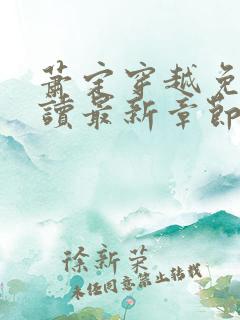 萧宗穿越免
读最新章节
徐新荣
未经同意禁止转载